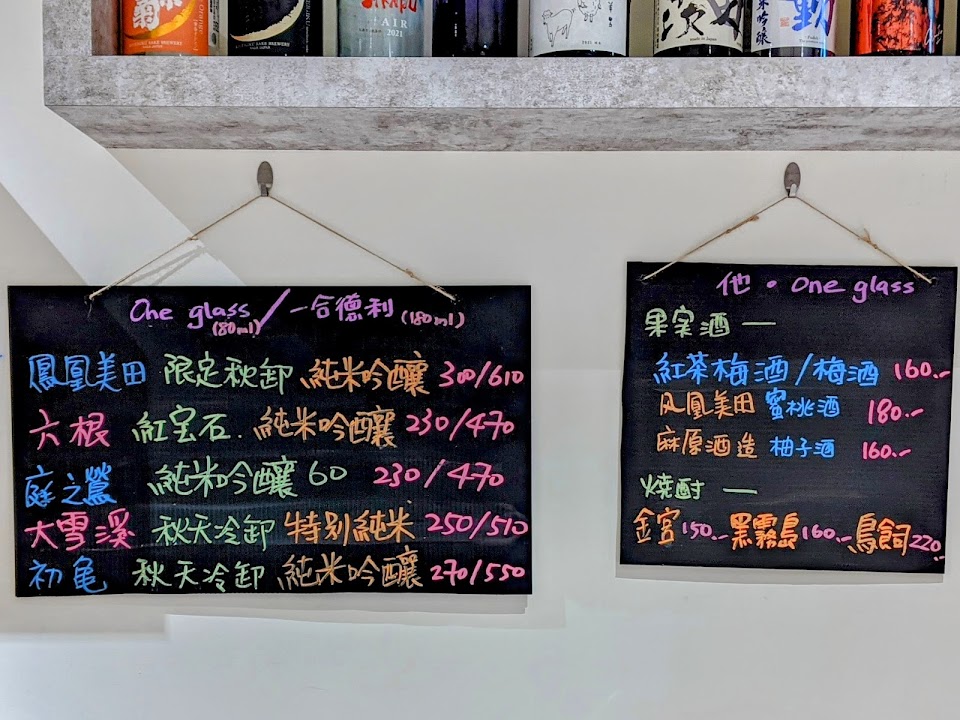 菊
AIR
2021
made in Japan
One glass / 一合德利
(80ml) (180ml)
鳳凰美田 限定秋卸 純米吟釀 300/610
六根 紅宝石. 純米吟釀 230/470
庭之鶯 純米吟釀 60 230/470
大雪溪 秋天冷卸 特別純米 250/510
初亀 秋天冷卸 純米吟釀 270/550
他・One glass
果実酒 —
紅茶梅酒/梅酒 160.-
凤凰美田 蜜桃酒 180.-
麻原酒造 柚子酒 160.-
燒酎 —
金宮 150.- 黑霧島 160.- 鳥飼 220.-